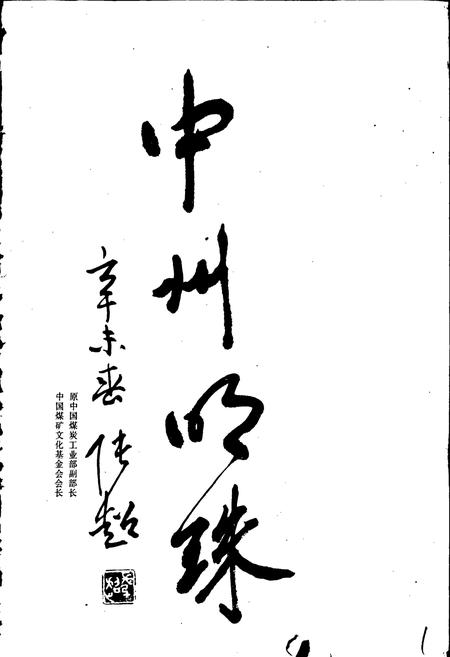 中州明珠
辛未春 张超
原中国煤炭工业部副部长
中国煤矿文化基金会会长